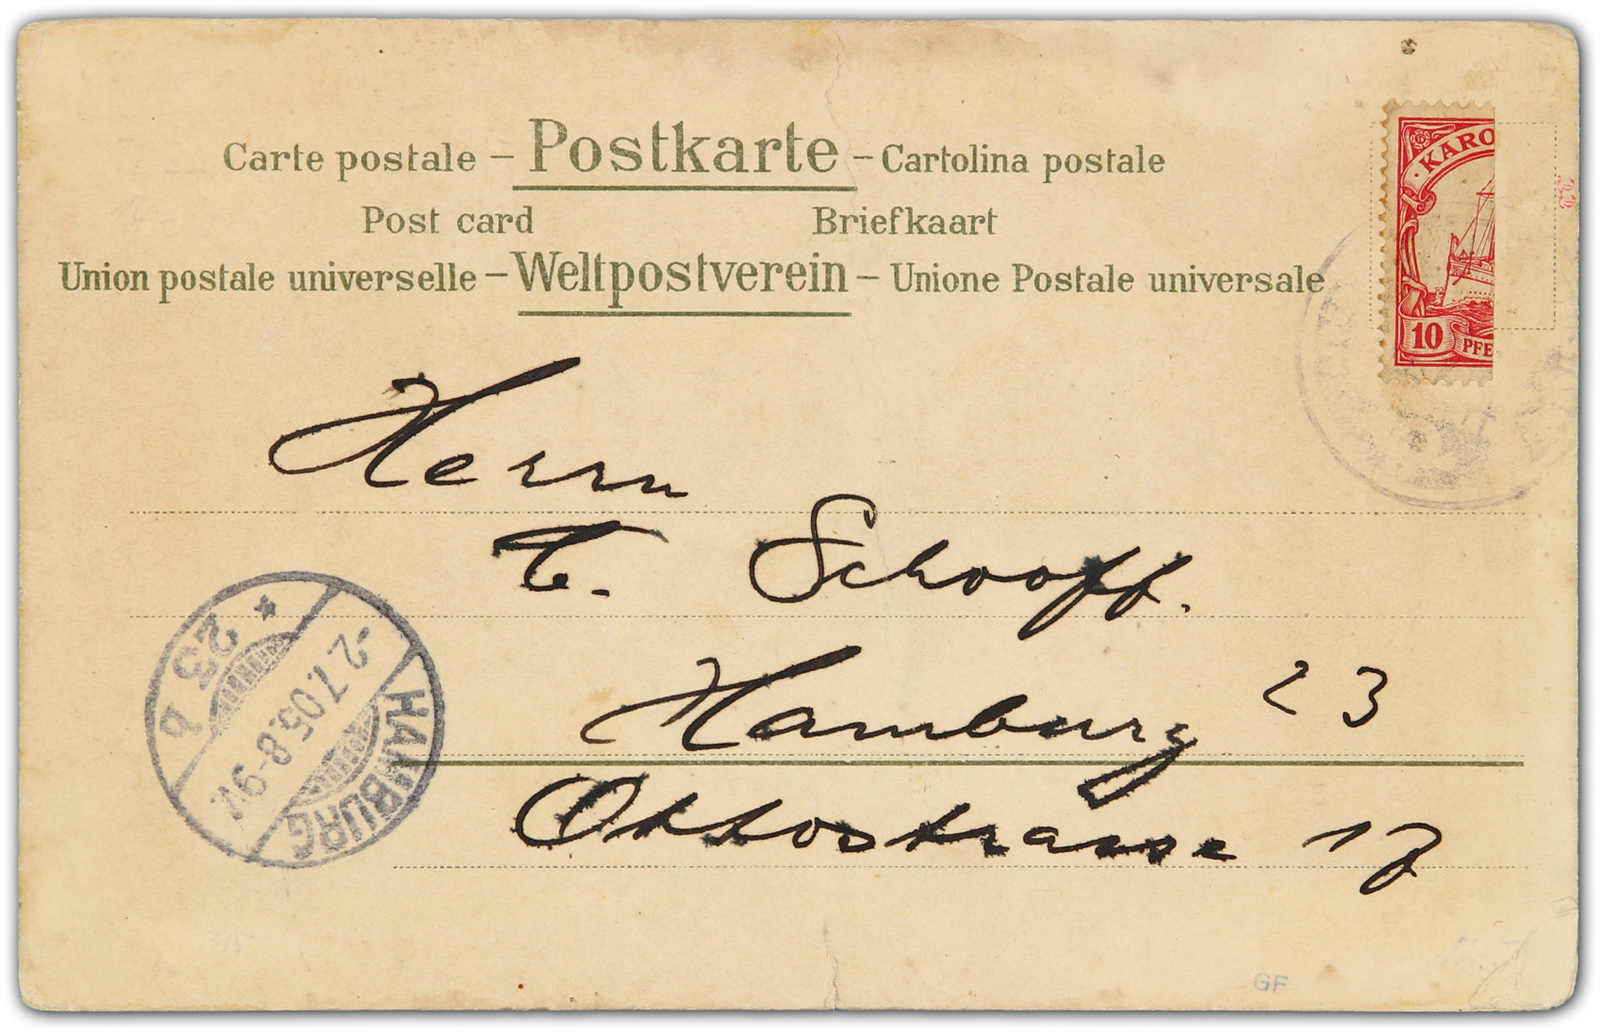 Carte postale – Postkarte – Cartolina postale
Post card Briefkaart
Union postale universelle – Weltpostverein – Unione Postale universale
KARO
10 PFE
Herrn
C. Schooff.
Hamburg 23
Ottostrasse 17
HAMBURG
-2.7.05.8-9V.
* 23 b
GF